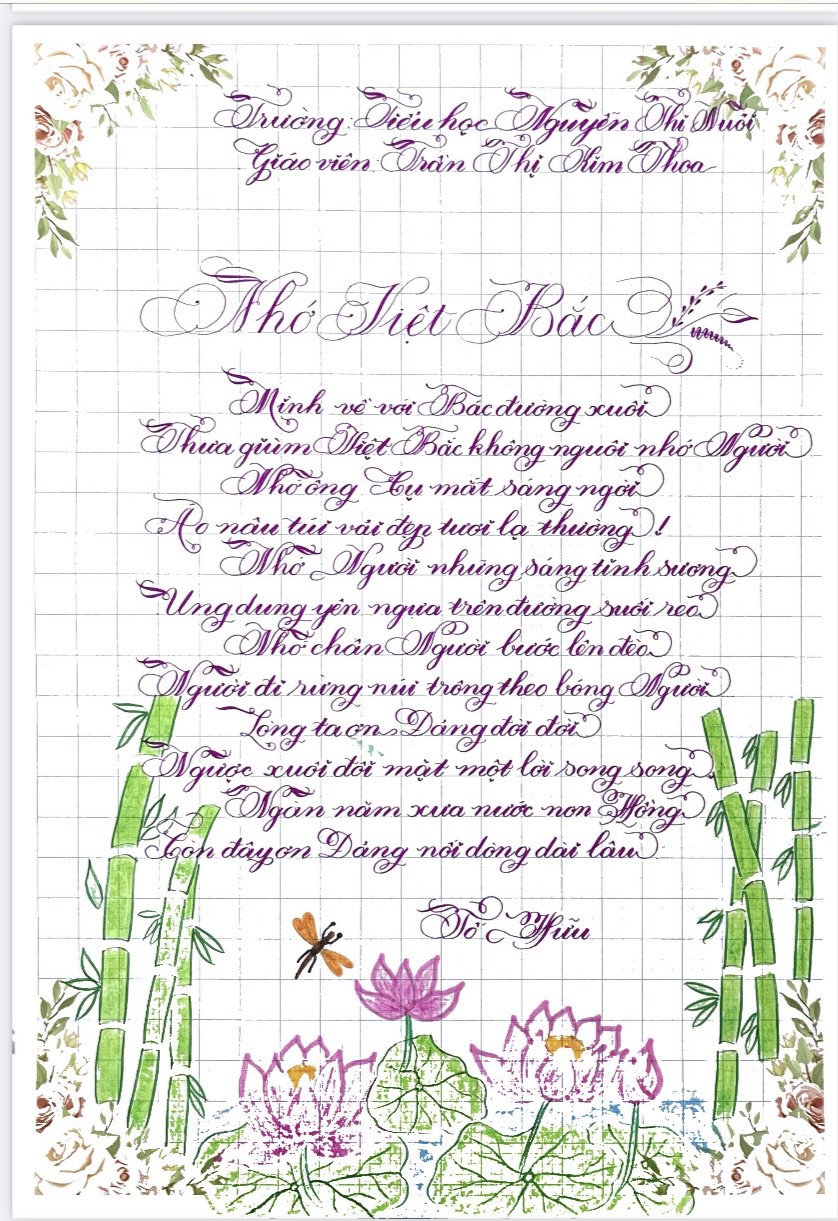 Trường Tiểu học Nguyễn Thị Nuôi
Giáo viên Trần Thị Kim Thoa
Nhớ Việt Bắc
Mình về với Bác đường xuôi
Thưa giùm Việt Bắc không nguôi nhớ Người
Nhớ ông Cụ mắt sáng ngời
Áo nâu túi vải đẹp tươi lạ thường !
Nhớ Người những sáng tinh sương
Ung dung yên ngựa trên đường suối reo
Nhớ chân Người bước lên đèo
Người đi rừng núi trông theo bóng Người
Lòng ta ơn Đảng đời đời
Ngược xuôi đôi mặt một lời song song.
Ngàn năm xưa nước non Hồng
Còn đây ơn Đảng nối dòng dài lâu
Tố Hữu